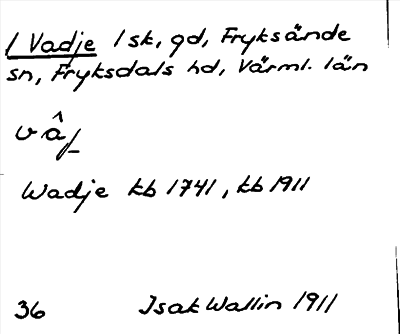 / Vadje 1 sk, gd, Fryksände
sn, Fryksdals hd, Värml. län
Wadje kb 1741, kb 1911
36 Isak Wallin 1911